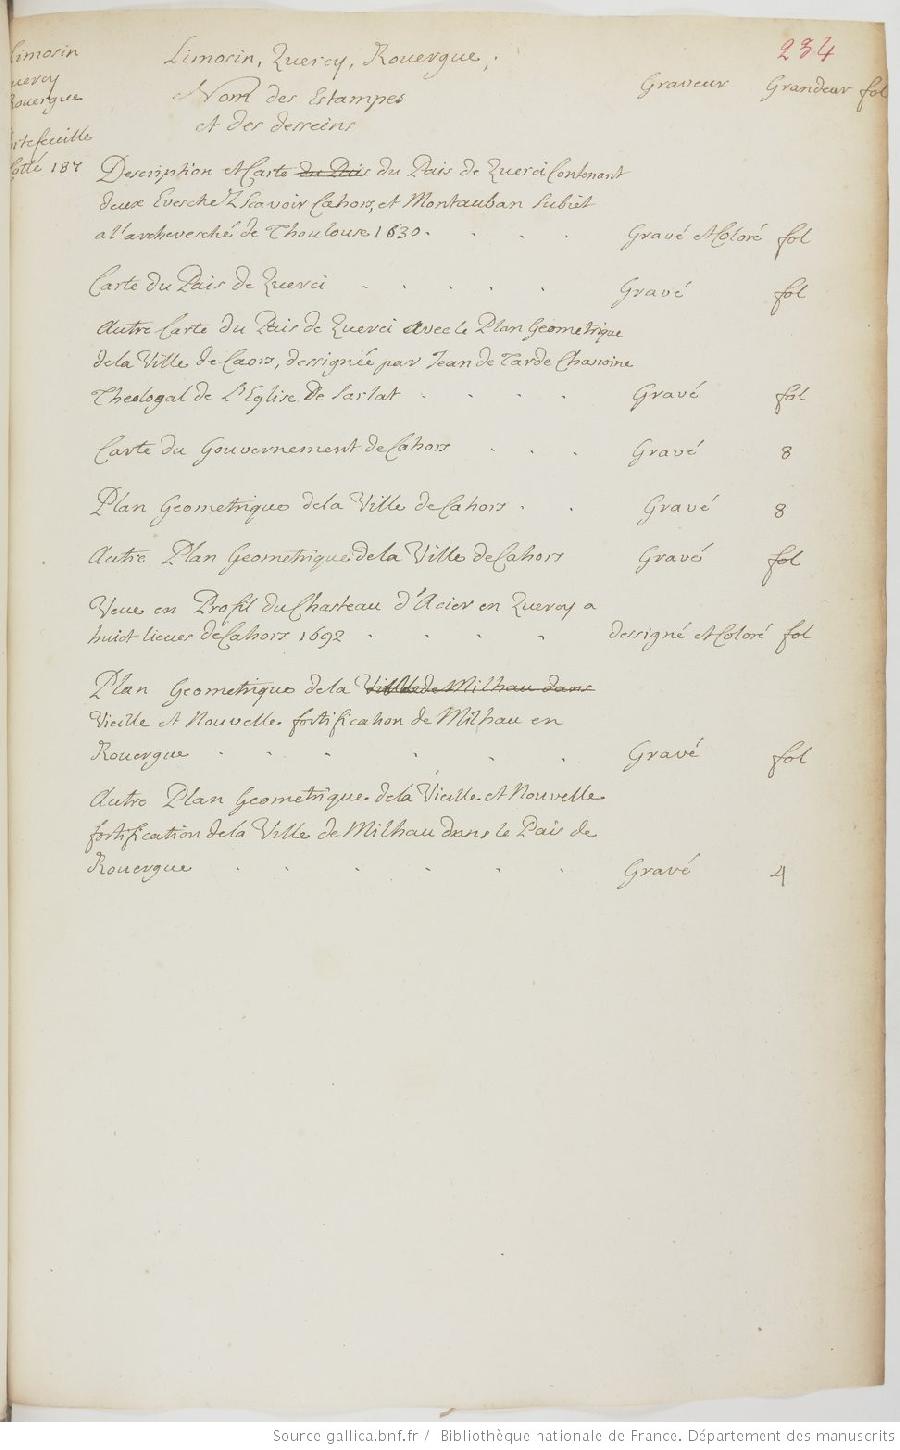 234
Limosin
Quercy
Rouergue
portefeuille
Cotté 187
Limosin, Quercy, Rouergue,
Nom des Estampes
et des desseins
Graveur Grandeur fol
Description et Carte du Pais du Pais de Querci Contenant
deux Eveschez Scavoir Cahors, et Montauban Subiet
a l'archevesché de Thoulouse 1630. Gravé et Coloré fol
Carte du Pais de Querci Gravé fol
Autre Carte du Pais de Querci avec le Plan Geometrique
de la Ville de Caors, dessignée par Jean de Tarde Chanoine
Theologal de L'Eglise De Sarlat Gravé fol
Carte du Gouvernement de Cahors Gravé 8
Plan Geometrique de la Ville de Cahors Gravé 8
Autre Plan Geometrique de la Ville de Cahors Gravé fol
Veue en Profil du Chasteau d'Acier en Quercy a
huict lieues de Cahors 1692 dessigné et Coloré fol
Plan Geometrique de la Ville de Milhau dans
Vieille et Nouvelle fortification de Milhau en
Rouergue Gravé fol
Autre Plan Geometrique de la Vieille et Nouvelle
fortification de la Ville de Milhau dans le Pais de
Rouergue Gravé 4
Source gallica.bnf.fr / Bibliothèque nationale de France. Département des manuscrits